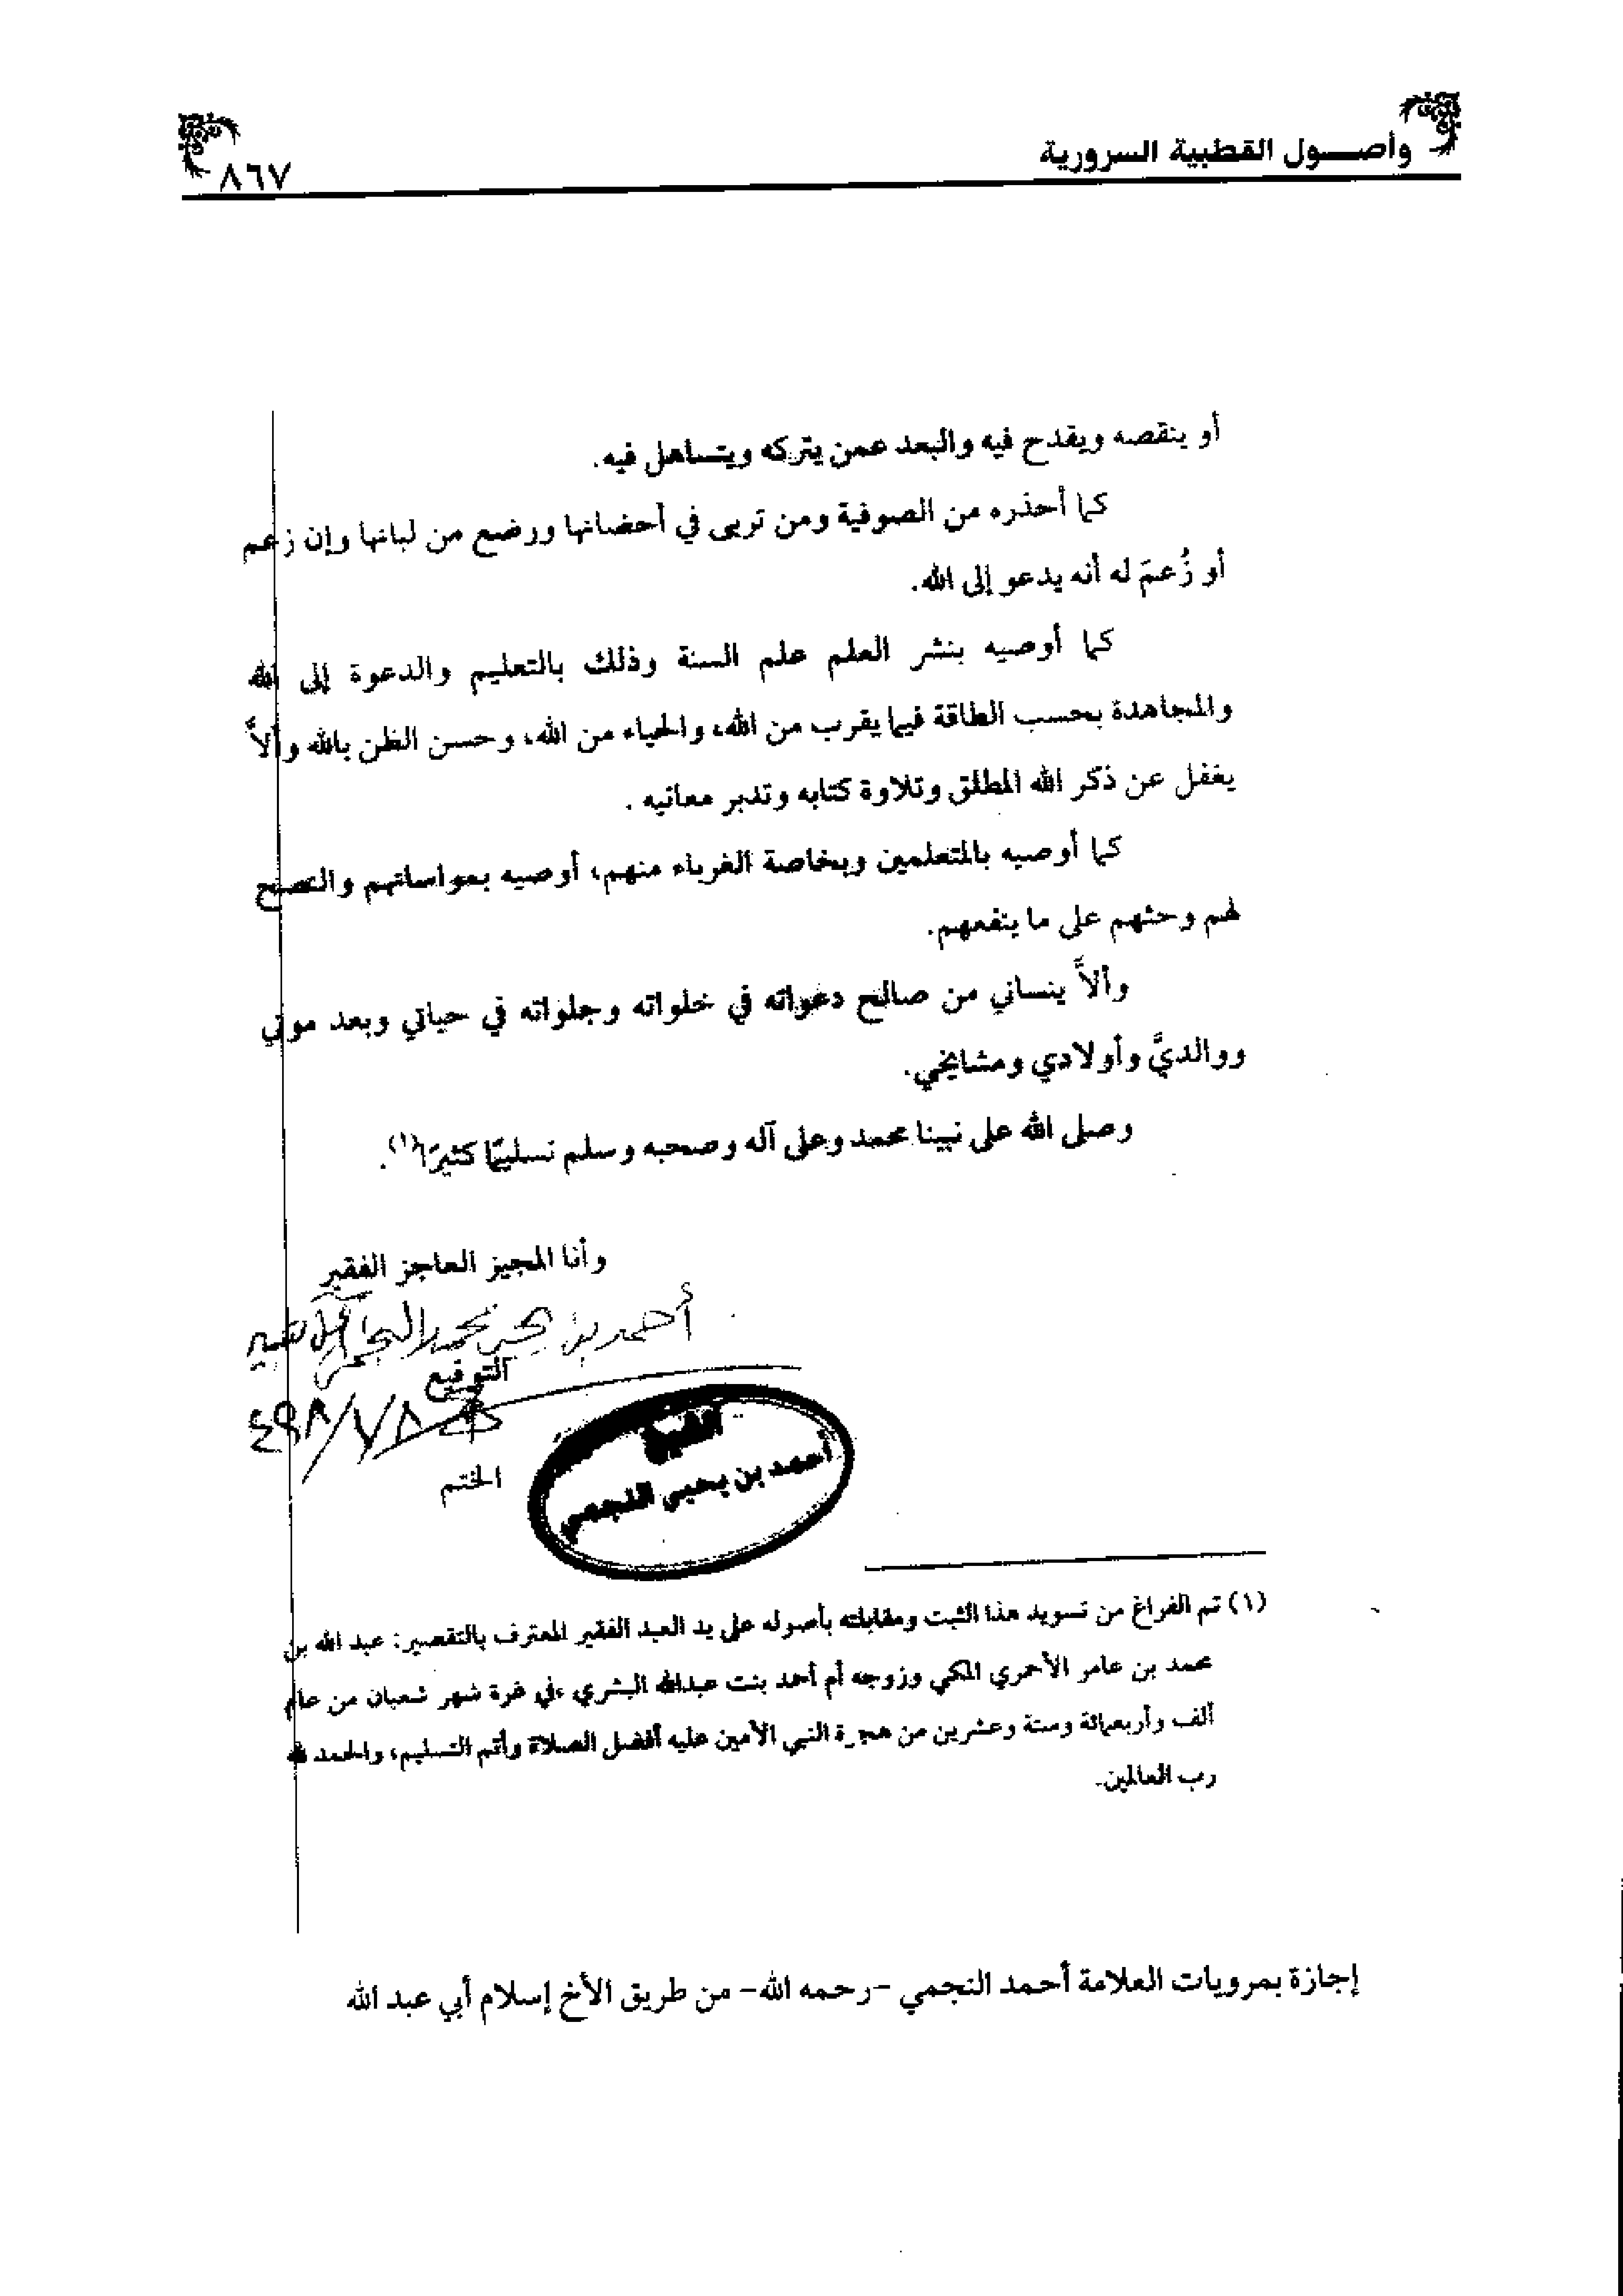 وأصـــول القطبية السرورية
٨٦٧
أو ينقصه ويقدح فيه والبعد عمن يتركه ويتساهل فيه.
كما أحذره من الصوفية ومن تربى في أحضانها ورضع من لبانها وإن زعم
أو زُعمَ له أنه يدعو إلى الله.
كما أوصيه بنشر العلم علم السنة وذلك بالتعليم والدعوة إلى الله
والمجاهدة بحسب الطاقة فيما يقرب من الله، والحياء من الله، وحسن الظن بالله وألاَّ
يغفل عن ذكر الله المطلق وتلاوة كتابه وتدبر معانيه .
كما أوصيه بالمتعلمين وبخاصة الغرباء منهم، أوصيه بمواساتهم والنصح
لهم وحثهم على ما ينفعهم.
وألاَّ ينساني من صالح دعواته في خلواته وجلواته في حياتي وبعد موتي
ووالديَّ وأولادي ومشايخي.
وصلى الله على نبينا محمد وعلى آله وصحبه وسلم تسليمًا كثيرًا(١).
وأنا المجيز العاجز الفقير
أحمد بن يحيى محمد النجمي
التوقيع
الختم
الشيخ
أحمد بن يحيى النجمي
(١) تم الفراغ من تسويد هذا الثبت ومقابلته بأصوله على يد العبد الفقير المعترف بالتقصير: عبد الله بن
محمد بن عامر الأحمري المكي وزوجه أم أحمد بنت عبدالله البشري ،في غرة شهر شعبان من عام
ألف وأربعمائة وستة وعشرين من هجرة النبي الأمين عليه أفضل الصلاة وأتم التسليم، والحمد لله
رب العالمين.
إجازة بمرويات العلامة أحمد النجمي -رحمه الله- من طريق الأخ إسلام أبي عبد الله